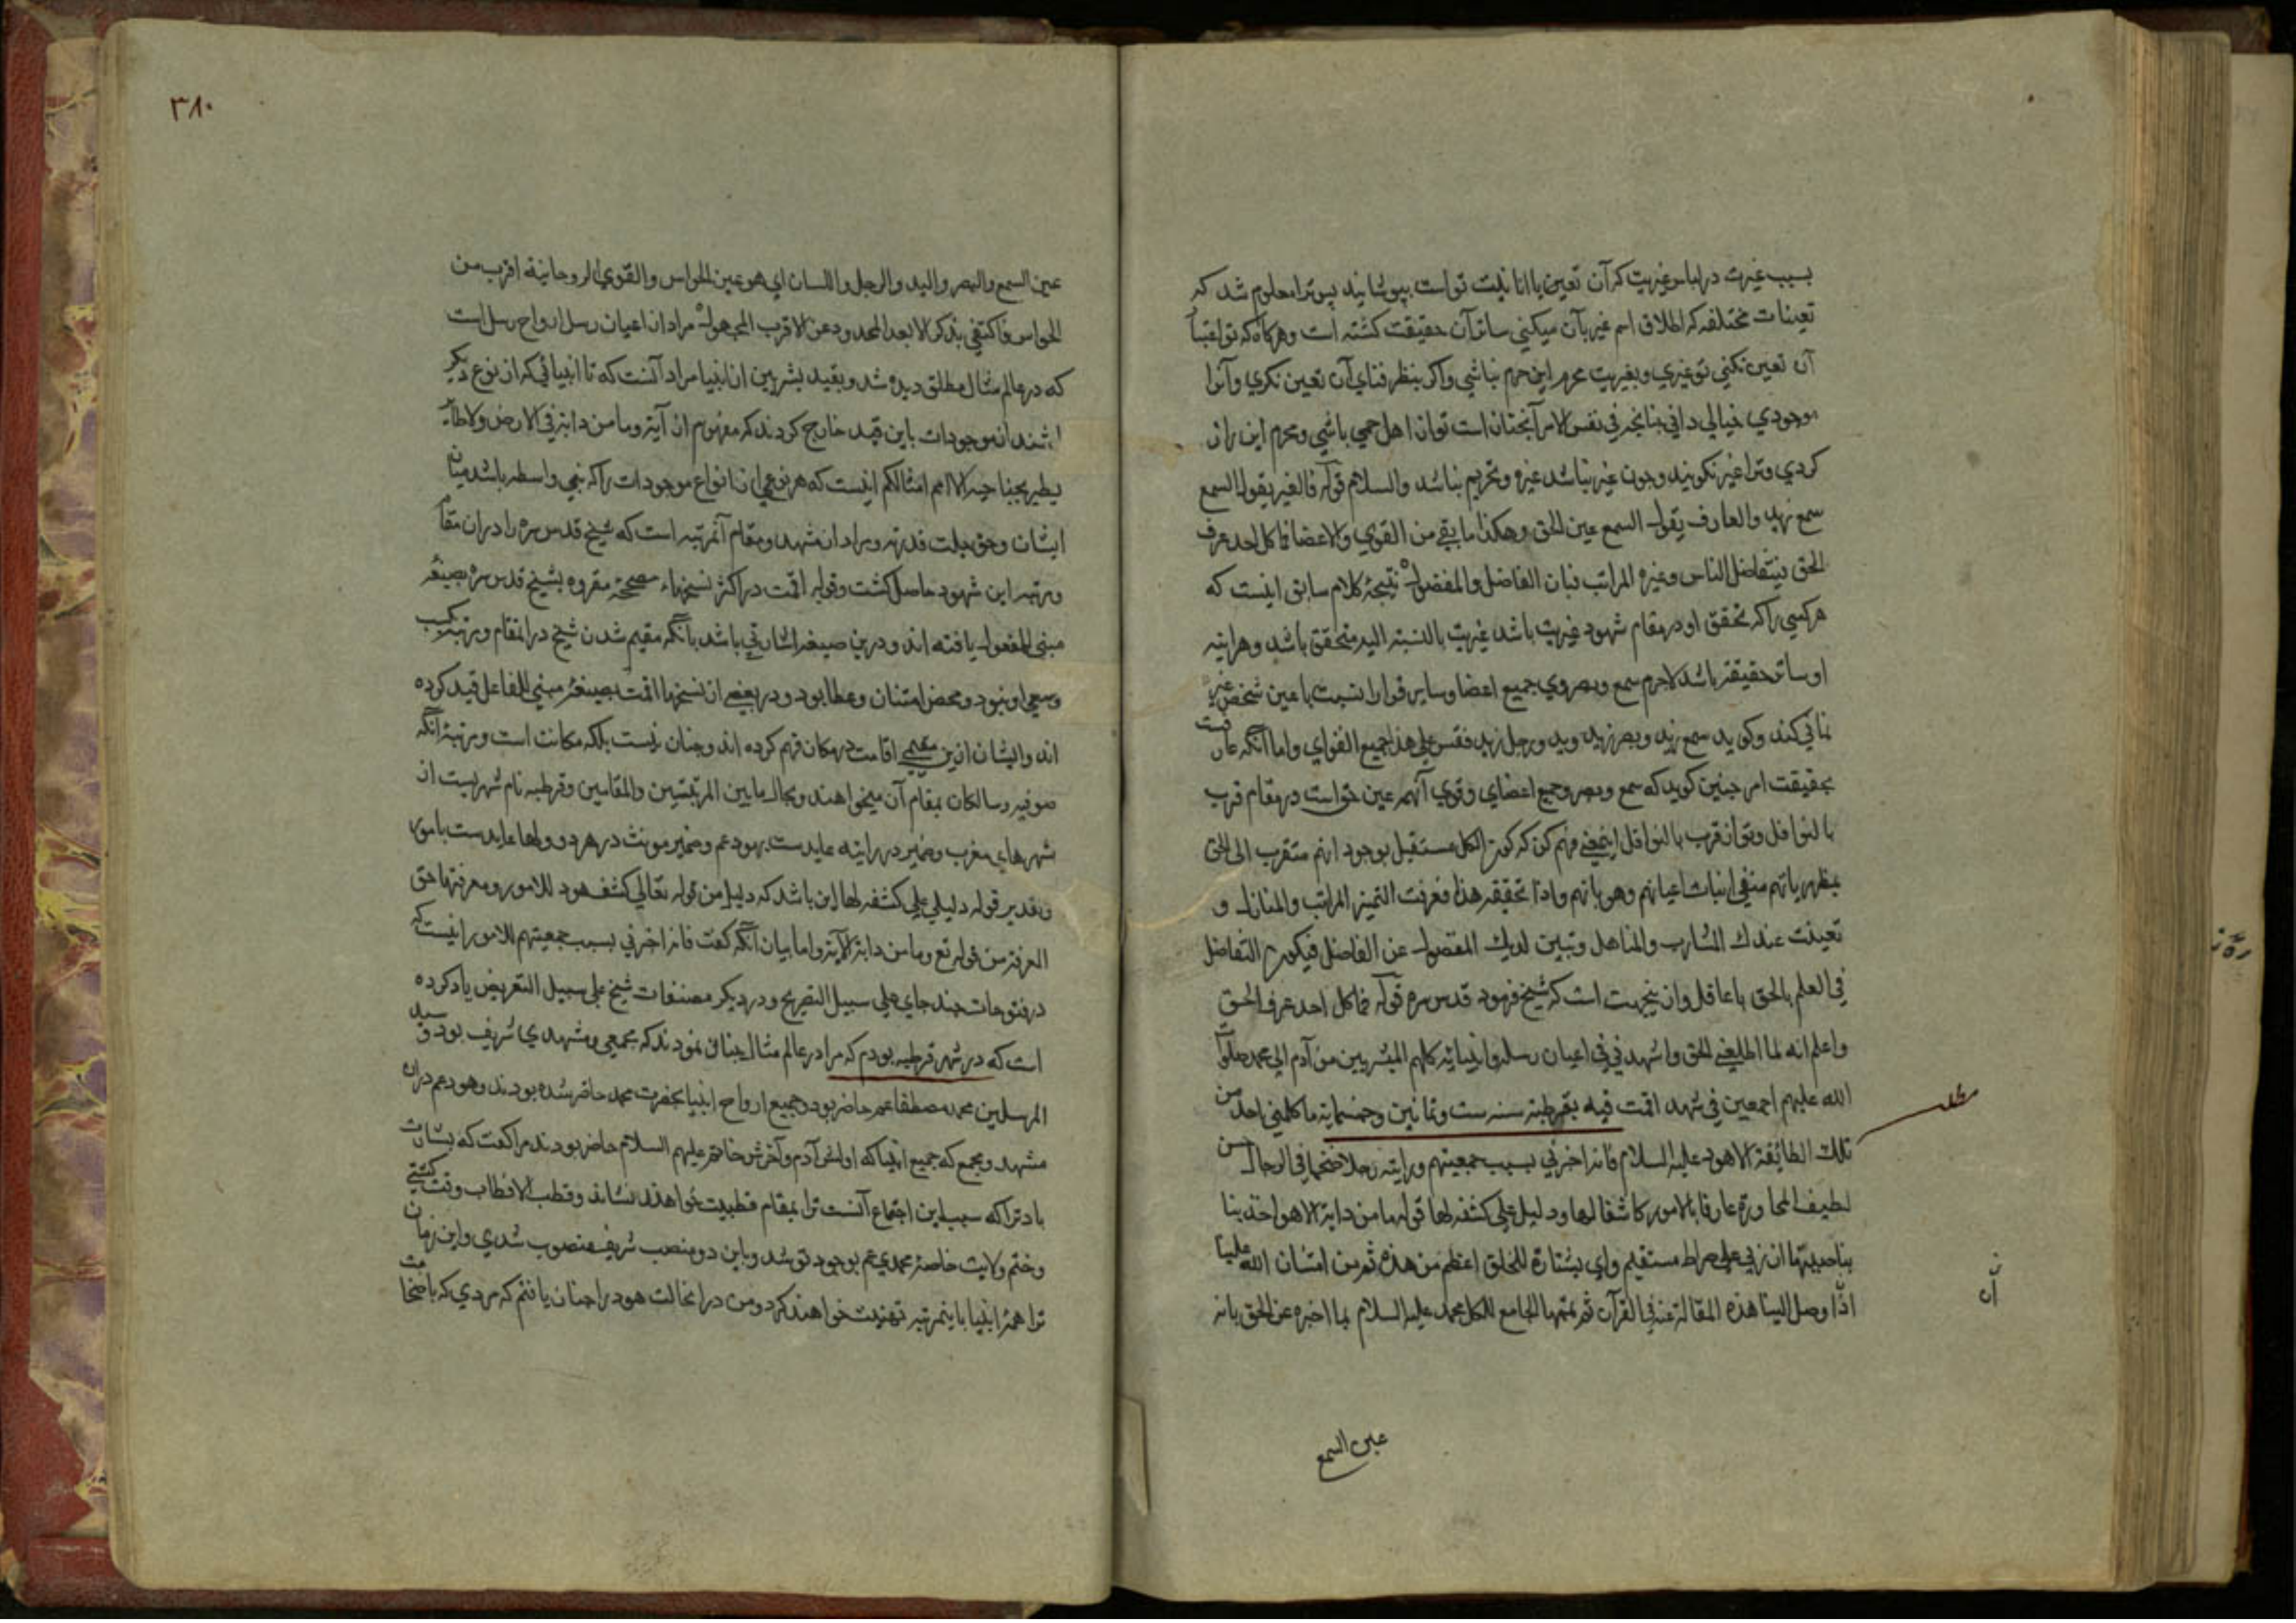 بسبب غیرت در لباس غیریت که آن تعین با انانیت تو است بپوشانید پس ترا معلوم شد که
تعینات مختلفه که اطلاق اسم غیر بآن میکنی ساتر آن حقیقت کشته است وهرکاه که تو
آن تعین نکنی تو غیری وبغیریت محرم این حرم نباشی واکر بنظر فنای آن تعین نکری وآنرا
موجودی خیالی دانی چنانچه فی نفس الامر آنچنان است تو از اهل حمی باشی ومحرم این راز
کردی وترا غیر نکویند وچون غیر نباشد غیره وتحریم نباشد والسلام قوله فالغیر یقول السمع
سمع زید والعارف یقول السمع عین الحق وهکذا ما بقی من القوی والاعضا فما کل احد عرف
الحق فیتفاضل الناس وغیره المراتب فبان الفاضل والمفضول نتیجهٔ کلام سابق اینست که
هر کسی را که تحقق او در مقام شهود غیریت باشد غیریت بالنسبة الیه متحقق باشد وهر اینه
او ساتر حقیقه باشد لاجرم سمع وبصر وی جمیع اعضا وسایر قوا را نسبت با عین شخص
کند وکوید سمع زید وبصر زید وید ورجل زید فقس علی هذا جمیع القوای واما آنکه عارفست
بحقیقت امر چنین کوید که سمع وبصر وجمیع اعضای وقوی آنهم عین حق است در مقام قرب
بالنوافل وتو از قرب بالنوافل این معنی فهم کن که کون الکل مستقبل بوجود انهم متقرب الی الحق
بظهور یاتهم منفی اثبات اعیانهم وهویاتهم واذا تحققه هذا فعرفت التمیز المراتب والمنازل و
تعینت عندک المشارب والمناهل وتبین لدیک المفضول عن الفاضل فیکون التفاضل
فی العلم بالحق یا عاقل وازینجهت است که شیخ فرمود قدس سره قوله فما کل احد عرف الحق
واعلم انه لما اطلعنی الحق واشهدنی فی اعیان رسله وانبیائه کلهم البشریین من آدم الی محمد صلوات
الله علیهم اجمعین فی شهد اقمت فیه بقرطبة سنه ست وثمانین وخمسمایة ما کلمنی احد من
تلک الطائفة الا هود علیه السلام فانه اخبرنی بسبب جمعیتهم ورایته رجلا ضخما فی الرجال حسن
لطیف المحاورة عارفا بالامور کاشفا لها ودلیلی علی کشفه لها قوله ما من دابة الا هو اخذ بنا
بناصیتها ان ربی علی صراط مستقیم وای بشارة للخلق اعظم من هذه ثم من امتنان الله علینا
اذا وصل الینا هذه المقالة عنه فی القرآن ثم تممها الجامع للکل محمد علیه السلام بما اخبره عن الحق بانه
عین السمع
۳۸۰
عین السمع والبصر والید والرجل واللسان ای هو عین الحواس والقوی الروحانیة اقرب من
الحواس فاکتفی بذکر الا بعد المحدود عن الاقرب المجهول مراد از اعیان رسل ارواح رسل است
که در عالم مثال مطلق دیده شد وبقید بشریین از انبیا مراد آنست که تا انبیائی که از نوع دیکر
باشند از موجودات باین قید خارج کردند که مفهوم از آیة وما من دابة فی الارض ولا طائر
یطیر بجناحیه الا امم امثالکم اینست که هر نوعی از انواع موجودات را که نبی واسطه باشد میان
ایشان وحق جلت قدرته ومراد از مشهد ومقام آنمرتبه است که شیخ قدس سره را در ان مقام
ومرتبه این شهود حاصل کشت وقوله اقمت در اکثر نسخهاء مصححهٔ مقروه بشیخ قدس سره بصیغهٔ
مبنی للمفعول یافته اند ودرین صیغه اشارتی باشد بآنکه مقیم شدن شیخ در انمقام ومرتبه بکسب
وسعی او نبود ومحض امتنان وعطا بود ودر بعضی از نسخها اقمت بصیغهٔ مبنی للفاعل قید کرده
اند وایشان ازین معنی اقامت در مکان فهم کرده اند وچنان نیست بلکه مکانت است ومرتبهٔ آنکه
صوفیه وسالکان بمقام آن میخواهند وبحال ما بین المرتبتین والمقامین وقرطبه نام شهریست از
شهرهای مغرب وضمیر در رایته عایدست بهود عم وضمیر مونث در هردو ولها عایدست بامور
وتقدیر قوله دلیلی علی کشفه لها این باشد که دلیل من قوله تعالی کشف هود للامور ومعرفتها حق
المعرفة من قوله تع وما من دابة الآیة واما بیان آنکه کفت فانه اخبرنی بسبب جمعیتهم للامور اینست که
در فتوحات چند جای علی سبیل التصریح ودر دیکر مصنفات شیخ علی سبیل التعریض یاد کرده
است که در شهر قرطبه بودم که مرا در عالم مثال چنان نمودند که مجمعی ومشهدی شریف بود وسید
المرسلین محمد مصطفا عم حاضر بود وجمیع ارواح انبیا بحضرت محمد حاضر شده بودند وهود عم در ان
مشهد ومجمع که جمیع انبیا که اولش آدم وآخرش خاتم علیهم السلام حاضر بودند مرا کفت که بشارت
باد ترا که سبب این اجتماع آنست ترا بمقام قطبیت خواهند نشاند وقطب الاقطاب وقت کشتی
وختم ولایت خاصهٔ محمدی عم بوجود تو شد وباین دو منصب شریف منصوب شدی واین زمان
ترا همهٔ انبیا باینمرتبه تهنیت خواهند کرد ومن در انحالت هود را چنان یافتم که مردی که باضخامت